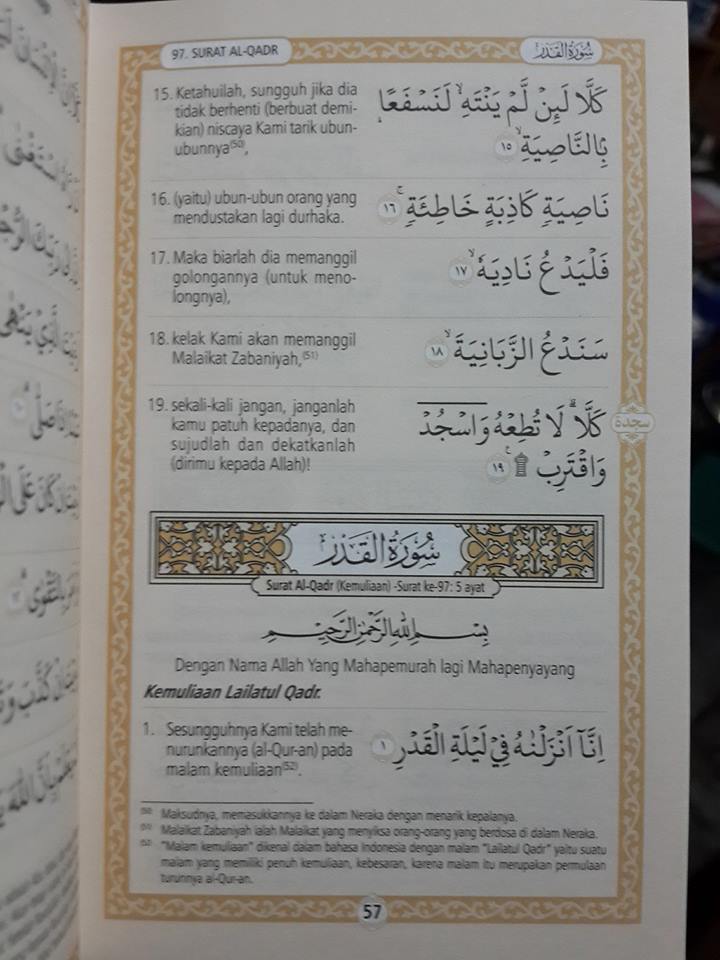 97. SURAT AL-QADR
سُوْرَةُ الْقَدْرِ
15. Ketahuilah, sungguh jika dia
tidak berhenti (berbuat demi-
kian) niscaya Kami tarik ubun-
ubunnya⁽⁵⁰⁾,
كَلَّا لَىِٕنْ لَّمْ يَنْتَهِ ۙ لَنَسْفَعًاۢ
بِالنَّاصِيَةِۙ ١٥
16. (yaitu) ubun-ubun orang yang
mendustakan lagi durhaka.
نَاصِيَةٍ كَاذِبَةٍ خَاطِئَةٍۚ ١٦
17. Maka biarlah dia memanggil
golongannya (untuk meno-
longnya),
فَلْيَدْعُ نَادِيَهٗۙ ١٧
18. kelak Kami akan memanggil
Malaikat Zabaniyah,⁽⁵¹⁾
سَنَدْعُ الزَّبَانِيَةَۙ ١٨
19. sekali-kali jangan, janganlah
kamu patuh kepadanya, dan
sujudlah dan dekatkanlah
(dirimu kepada Allah)!
كَلَّاۗ لَا تُطِعْهُ وَاسْجُدْ
وَاقْتَرِبْ ۩ ١٩
سجدة
سُوْرَةُ الْقَدْرِ
Surat Al-Qadr (Kemuliaan) -Surat ke-97: 5 ayat
بِسْمِ اللهِ الرَّحْمٰنِ الرَّحِيْمِ
Dengan Nama Allah Yang Mahapemurah lagi Mahapenyayang
Kemuliaan Lailatul Qadr.
1. Sesungguhnya Kami telah me-
nurunkannya (al-Qur-an) pada
malam kemuliaan⁽⁵²⁾.
اِنَّآ اَنْزَلْنٰهُ فِيْ لَيْلَةِ الْقَدْرِ ١
⁽⁵⁰⁾ Maksudnya, memasukkannya ke dalam Neraka dengan menarik kepalanya.
⁽⁵¹⁾ Malaikat Zabaniyah ialah Malaikat yang menyiksa orang-orang yang berdosa di dalam Neraka.
⁽⁵²⁾ "Malam kemuliaan" dikenal dalam bahasa Indonesia dengan malam "Lailatul Qadr" yaitu suatu
malam yang memiliki penuh kemuliaan, kebesaran, karena malam itu merupakan permulaan
turunnya al-Qur-an.
57